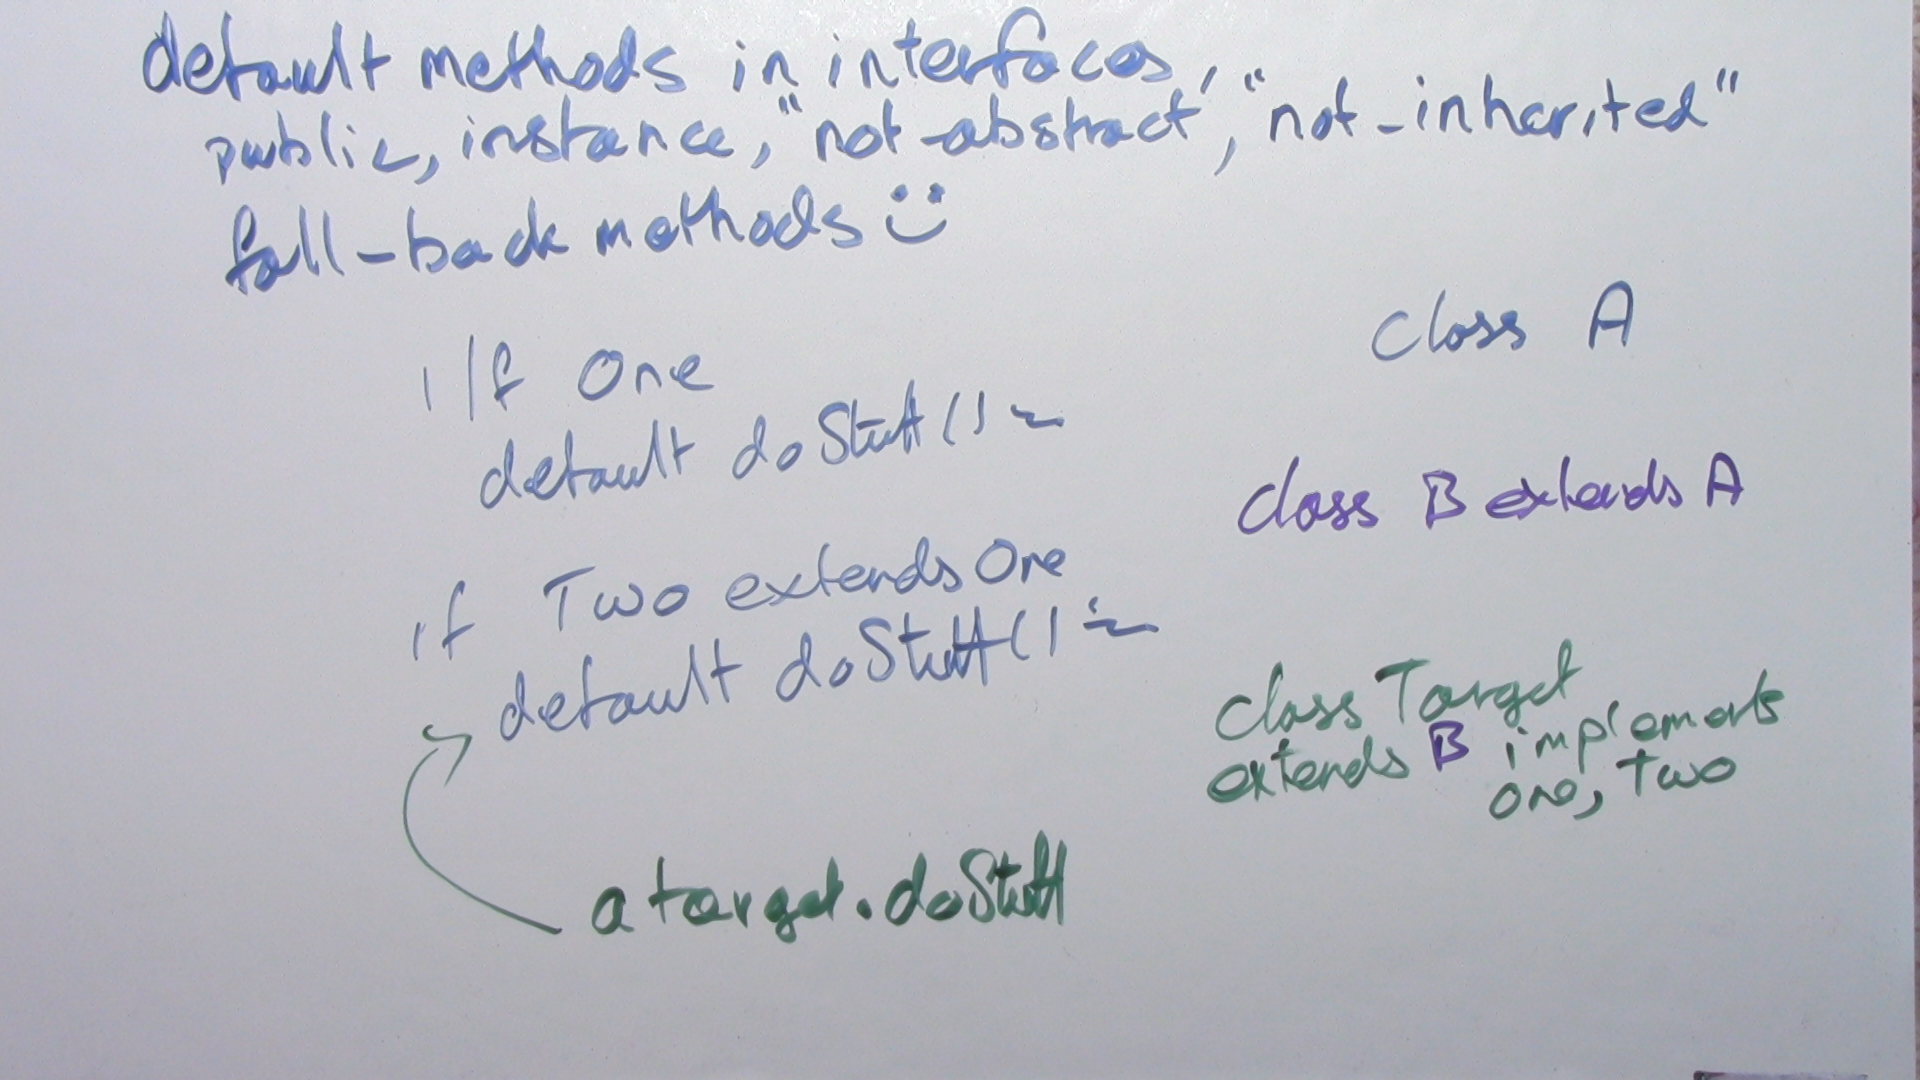 default methods in interfaces
public, instance, "not-abstract", "not-inherited"
fall-back methods
i/f One
default doStuff()
if Two extends One
default doStuff()
a target.doStuff
class A
class B extends A
class Target
extends B implements
One, Two